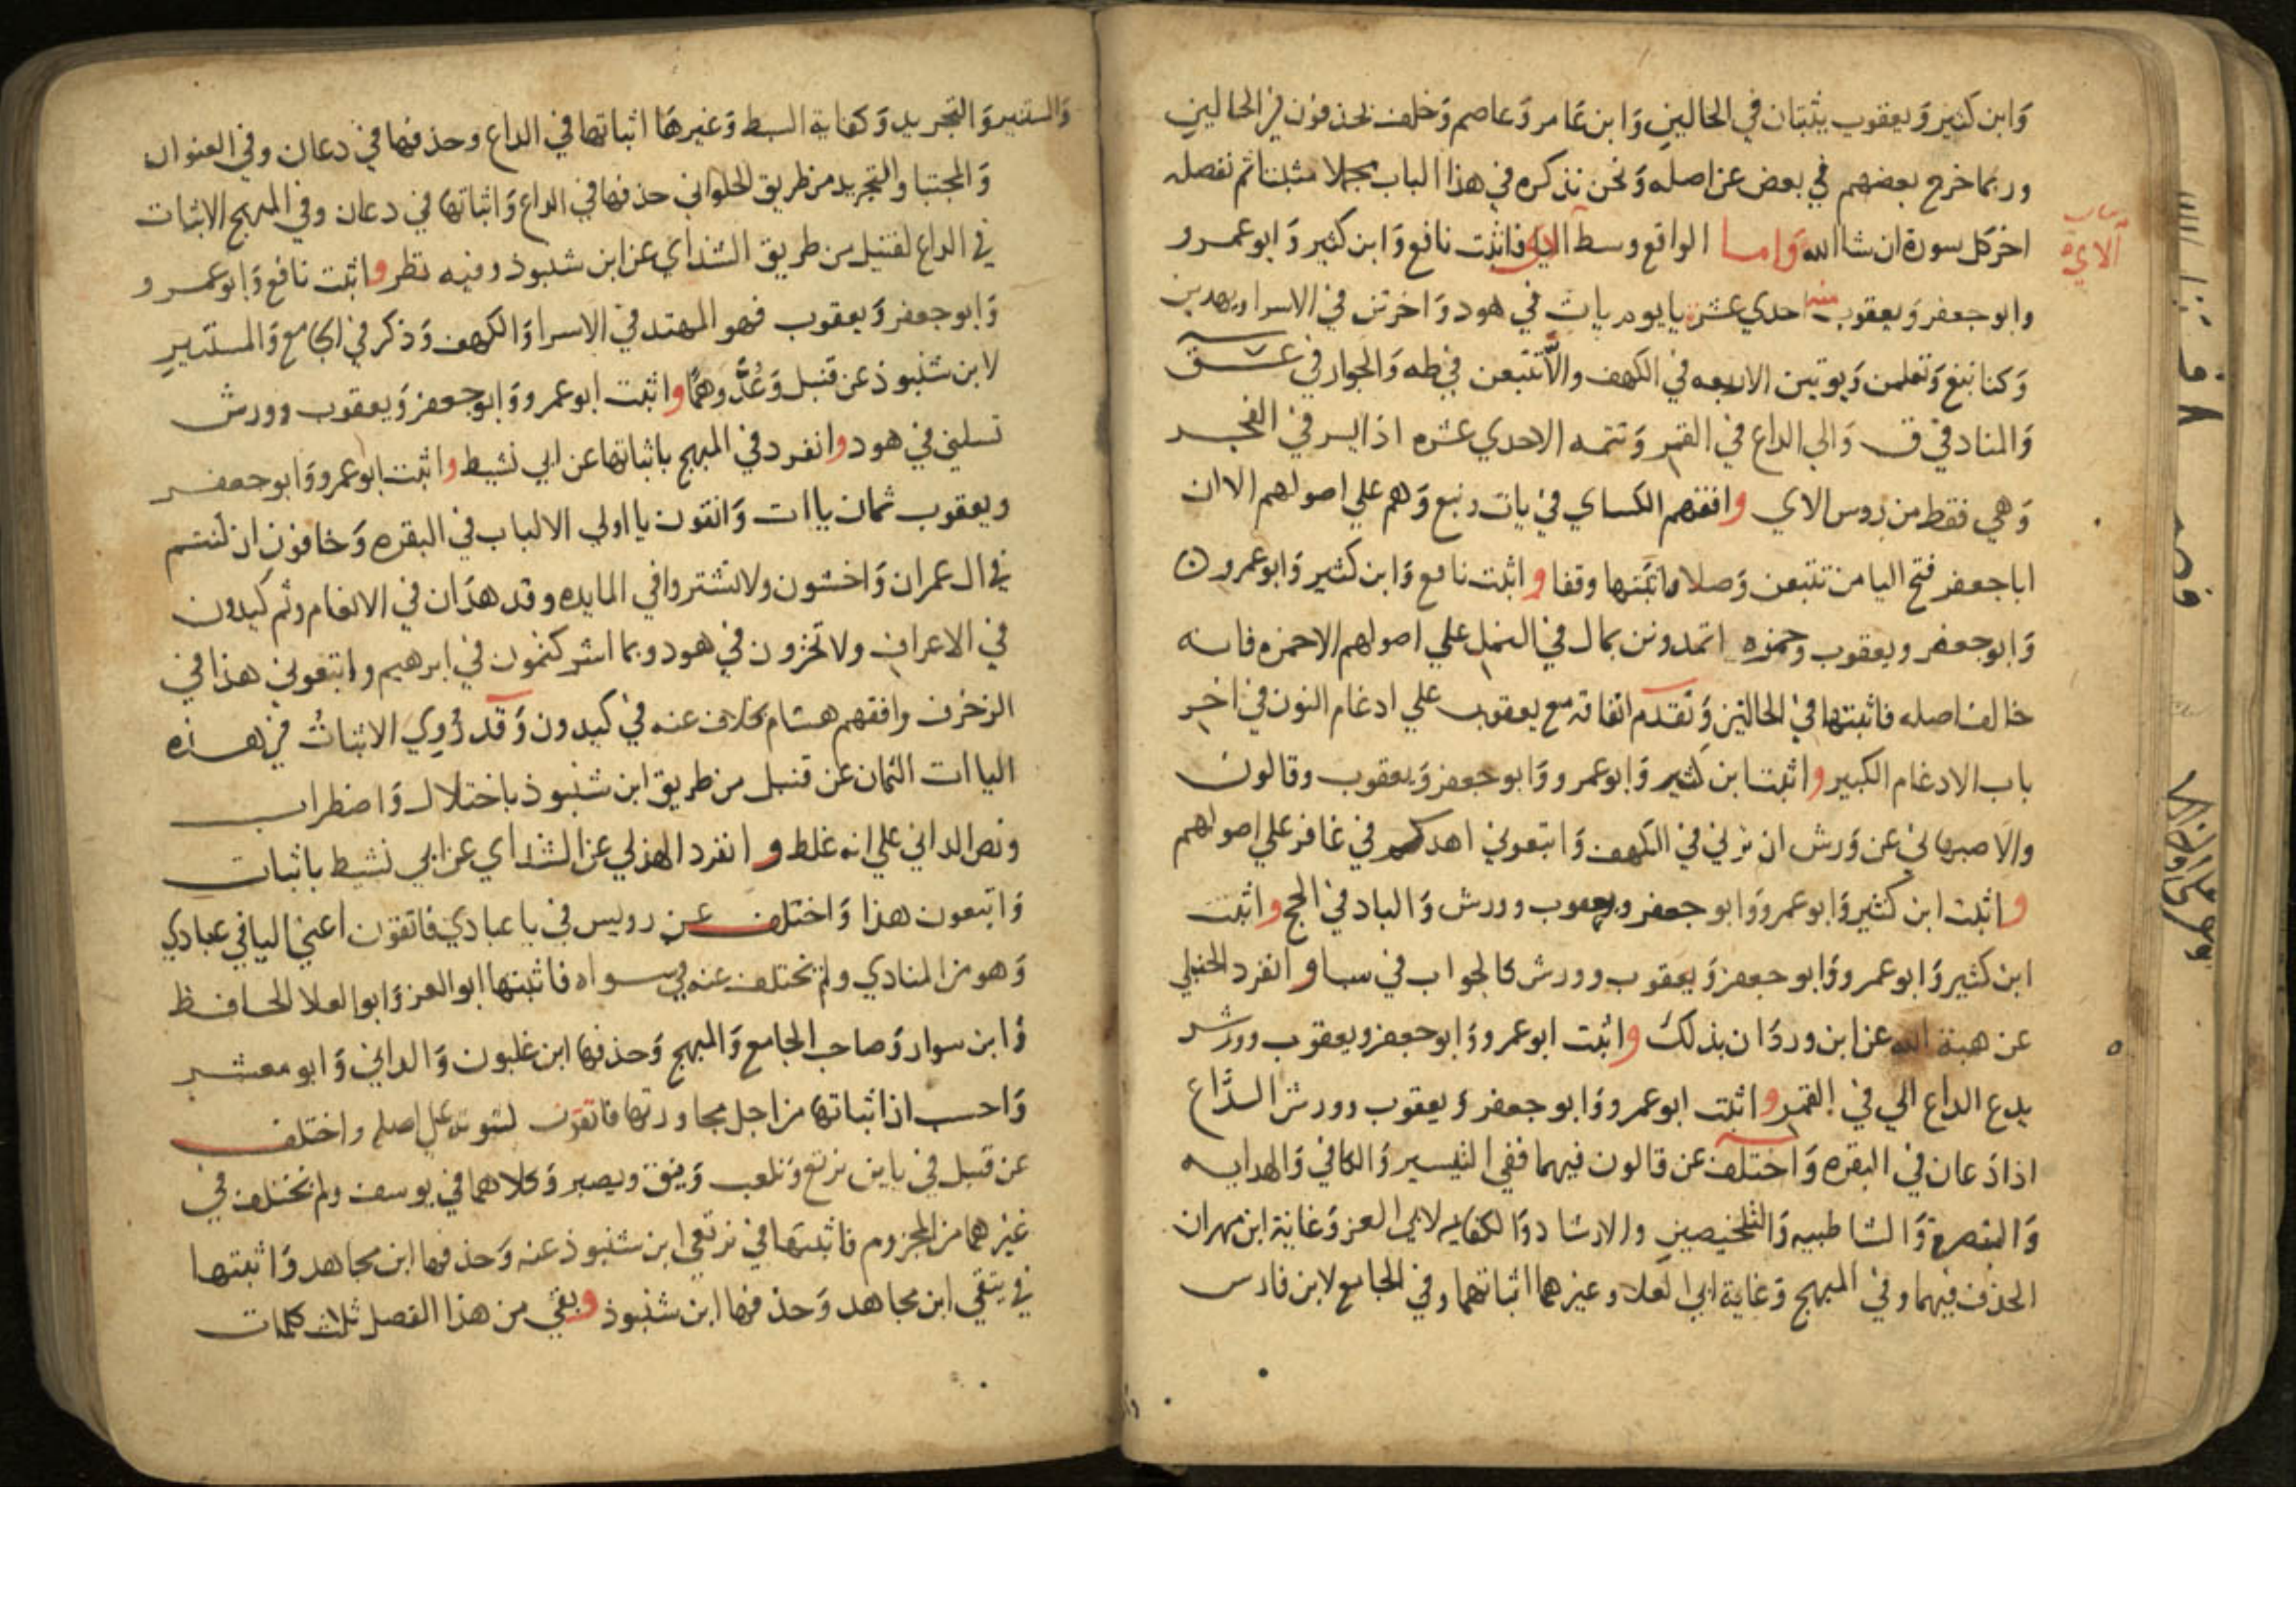 وَابن كثير وَيعقوب يثبتان في الحالين وَابن عَامر وَعاصم وَخلف يحذفون في الحالين
وربما خرج بعضهم في بعض عن اصله وَنحن نذكره في هذا الباب مجملا مثبتا ثم نفصله
اخر كل سورة ان شا الله وَاما الواقع وسط الاي فاثبت نافع وَابن كثير وَابو عمرو
وابو جعفر وَيعقوب منه احدي عشرة يا يوم يات في هود وَاخرتن في الاسرا ويهدين
وَكنا نبغ وَتعلمن وَيوتين الاربعه في الكهف والاّ تتبعن في طه وَالجوار في عسق
وَالمناد في ق وَالي الداع في القمر وَتتمه الاحدي عشره اذا يسر في الفجر
وَهي فقط من روس الاي وافقهم الكساي في يات ونبغ وَهم علي اصولهم الا ان
ابا جعفر فتح اليا من تتبعن وَصلا واثبتها وقفا واثبت نافع وَابن كثير وَابو عمرو
وَابو جعفر ويعقوب وحمزه اتمدونن بمال في النمل علي اصولهم الا حمزه فانه
خالف اصله فاثبتها في الحالين وَتقدم اتفاقه مع يعقوب علي ادغام النون في اخر
باب الادغام الكبير واثبت ابن كثير وَابو عمرو وَابو جعفر وَيعقوب وقالون
والاصبهاني عن وَرش ان ترني في الكهف وَاتبعوني اهدكم في غافر علي اصولهم
واثبت ابن كثير وَابو عمرو وَابو جعفر ويعقوب وورش وَالباد في الحج واثبت
ابن كثير وَابو عمرو وَابو جعفر وَيعقوب وورش كالجواب في سبا وانفرد الحنبلي
عن هبة الله عن ابن وردَان بذلك واثبت ابو عمرو وَابو جعفر ويعقوب وورش
يدع الداع الي في القمر واثبت ابو عمرو وَابو جعفر وَيعقوب وورش الدَّاع
اذا دَعان في البقره وَاختلف عن قالون فيهما ففي التيسير وَالكافي وَالهدايه
وَالتبصرة وَالشاطبيه وَالتلخيصين والارشاد وَالكفايه لابي العز وَغاية ابن مهران
الحذف فيهما وفي المبهج وَغاية ابي العلا وغيرهما اثباتهما وفي الجامع لابن فارس
الاي
وَالمستنير وَالتجريد وَكفاية السبط وَغيرهَا اثباتها في الداع وحذفها في دعان وفي العنوان
وَالمجتبا وَالتجريد من طريق الحلواني حذفها في الداع وَاثباتها في دعان وفي المبهج الاثبات
في الداع لقنبل من طريق الشذاي عن ابن شنبوذ وفيه نظر واثبت نافع وَابو عمرو
وَابو جعفر وَيعقوب فهو المهتد في الاسرا وَالكهف وَذكر في الجامع وَالمستنير
لابن شنبوذ عن قنبل وَعُدَّ وهمًا واثبت ابو عمرو وَابو جعفر وَيعقوب وورش
تسلني في هود وانفرد في المبهج باثباتها عن ابي نشيط واثبت ابو عمرو وَابو جعفر
ويعقوب ثمان ياات وَاتقون يا اولي الالباب في البقره وَخافون ان كنتم
في ال عمران وَاخشون ولا تشتروا في المايده وقد هدَان في الانعام وثم كيدون
في الاعراف ولا تخزون في هود وبما اشركتمون في ابرهيم واتبعوني هذا في
الزخرف وافقهم هشام بخلاف عنه في كيدون وَقد رُوي الاثباتُ في هذه
الياات الثمان عن قنبل من طريق ابن شنبوذ باختلال وَاضطراب
ونص الداني علي انه غلط وانفرد الهذلي عن الشذاي عن ابي نشيط باثبات
وَاتبعون هذا وَاختلف عن رويس في يا عبادي فاتقون اعني اليا في عبادي
وَهو من المنادي ولم نختلف عنه في سواه فاثبتها ابو العز وَابو العلا الحافظ
وَابن سوار وَصاحب الجامع وَالمبهج وَحذفها ابن غلبون وَالداني وَابو معشر
وَاحسب ان اثباتها من اجل مجاورتها فاتقون لثبوته علي اصله واختلف
عن قنبل في يا ين نرتع وَنلعب وَيتق ويصبر وَكلاهما في يوسف ولم نختلف في
غيرهما من المجزوم فاثبتها في نرتعي ابن شنبوذ عنه وَحذفها ابن مجاهد وَاثبتها
في يتقي ابن مجاهد وَحذفها ابن شنبوذ وبقي من هذا الفصل ثلاث كلمات